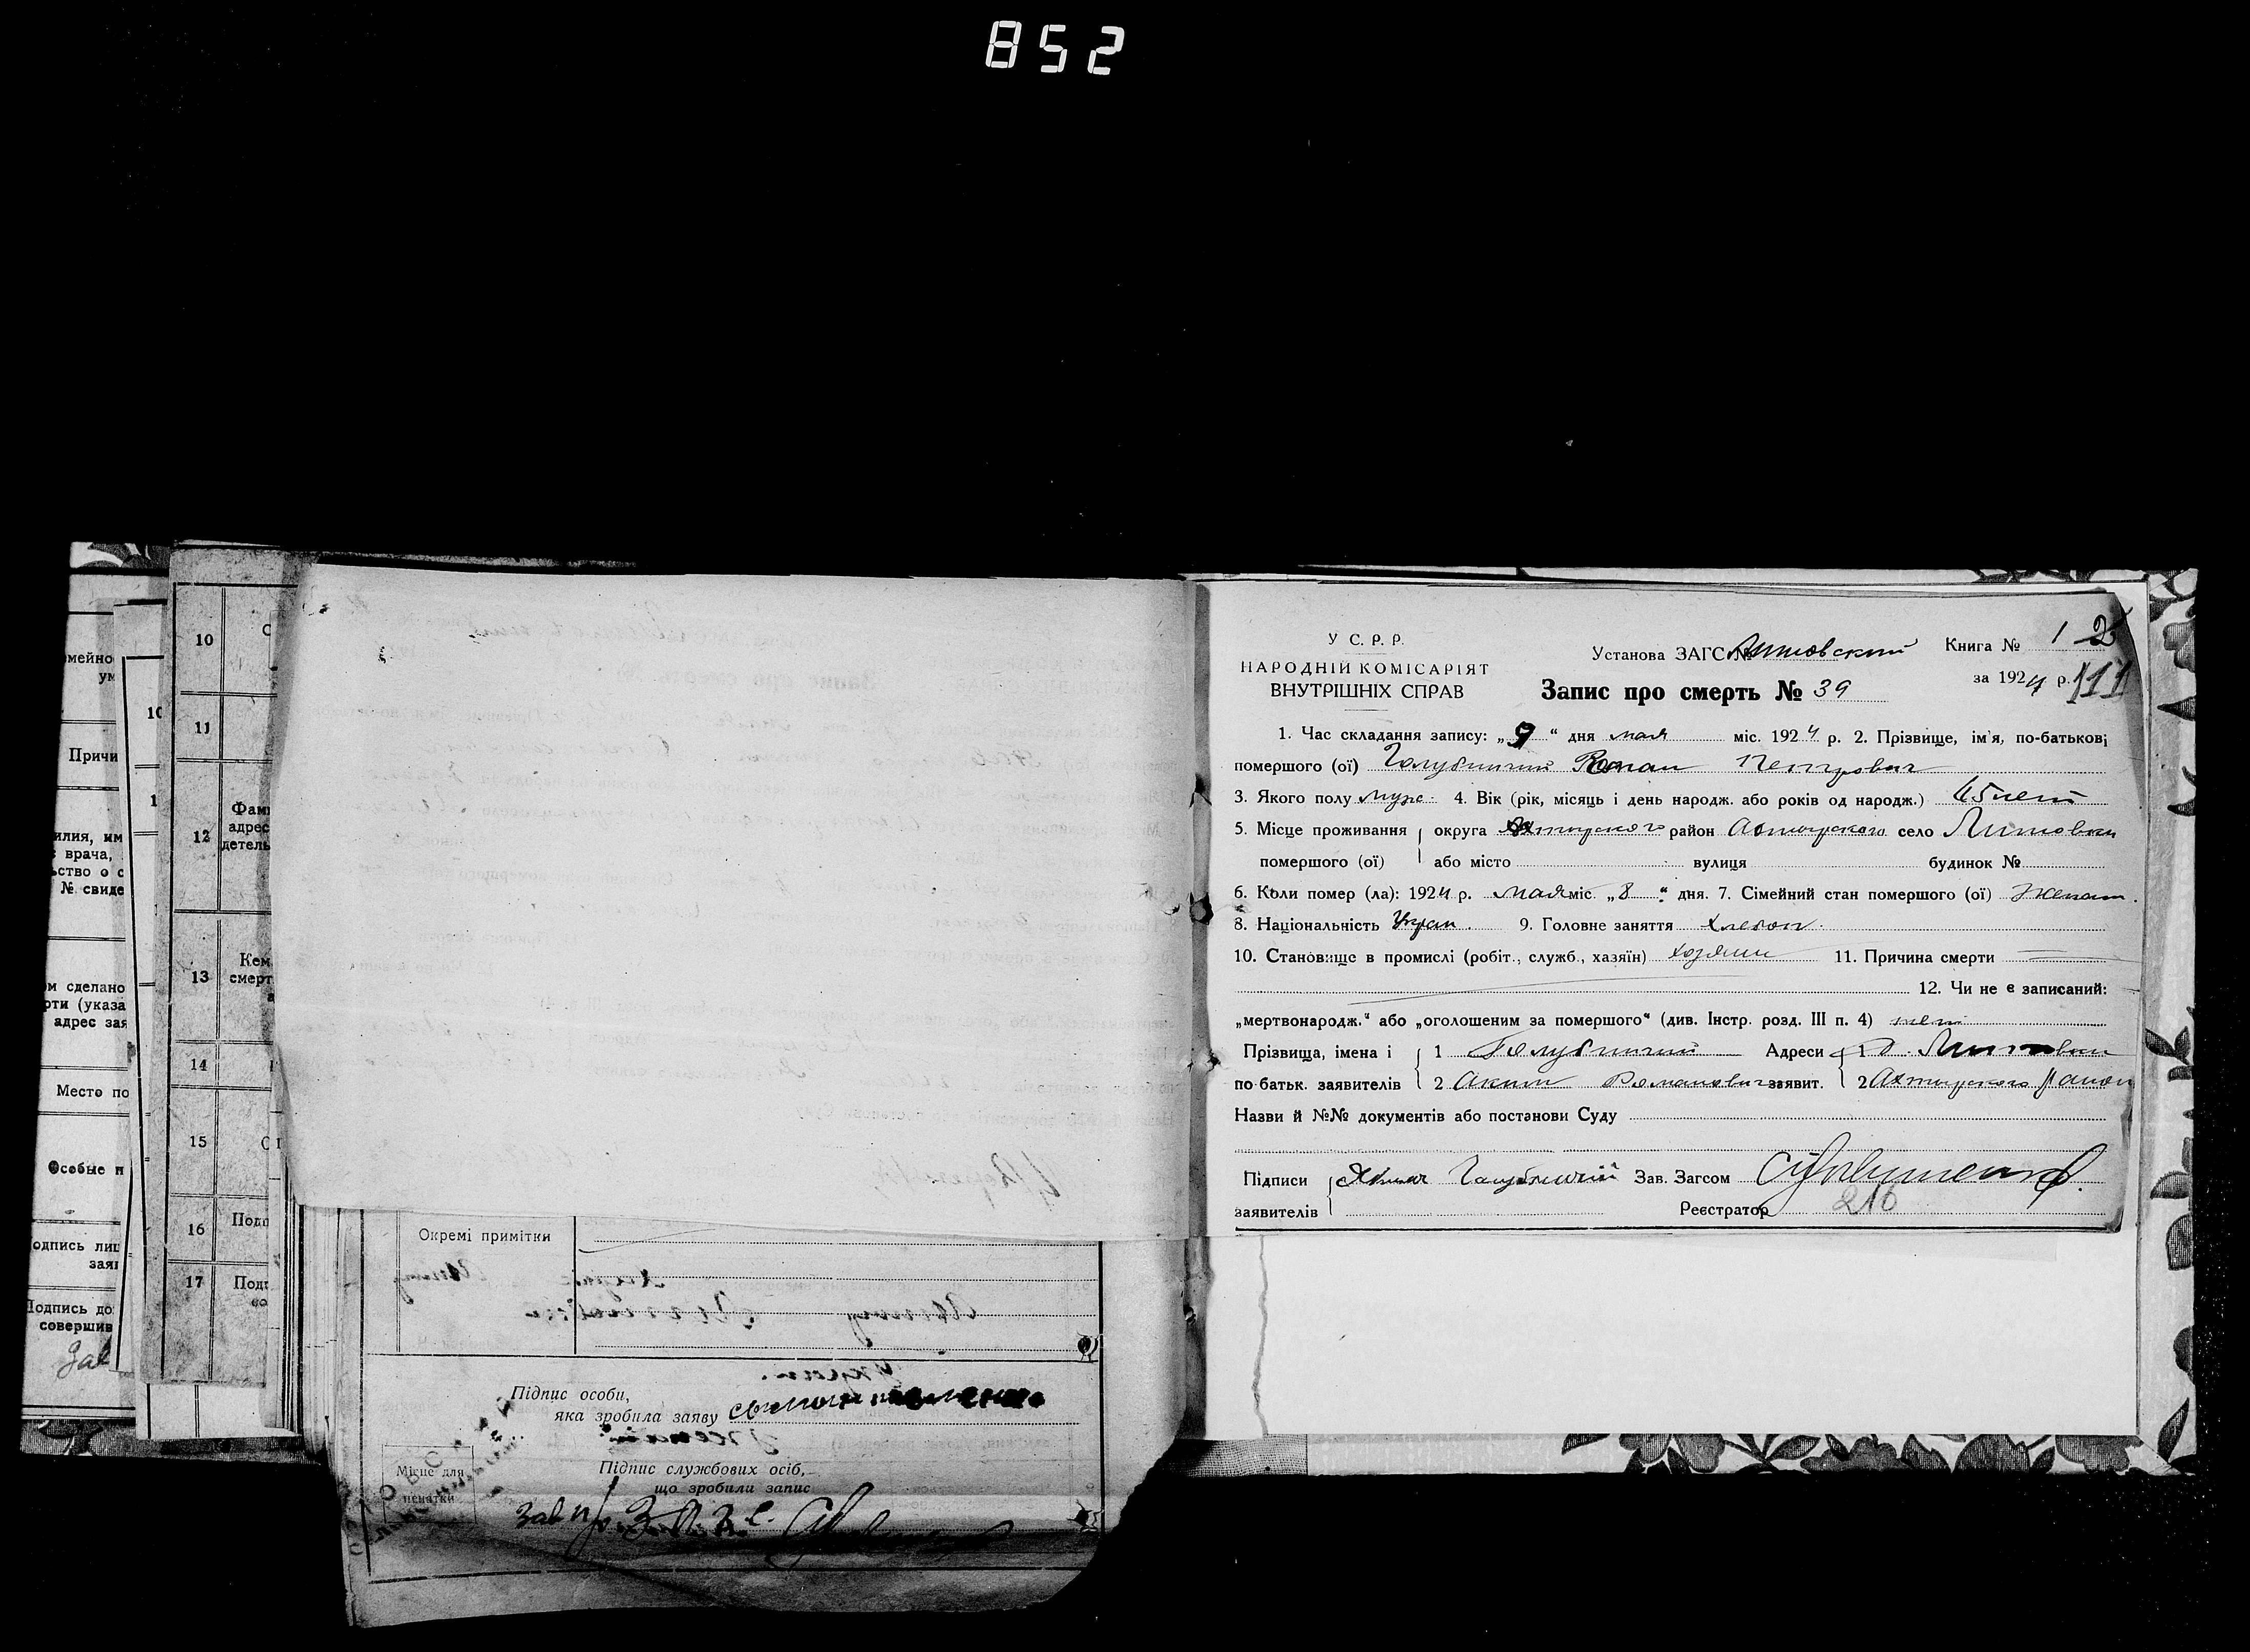 852
10
мейно
ум
10
11
Причи
1
Фами
адрес
12
детель
илия, им
врача,
ьство о с
№ свиде
Кем
13 смерт
а
м сделано
рти (указа
адрес зая
14
Место по
15
Особые п
16 Подп
одпись лиц
заяв
17 Подп
Подпись до
совершив
Зав
Окремі примітки
Підпис особи,
яка зробила заяву
Місце для
печатки
Підпис службових осіб,
що зробили запис
У С. Р. Р.
НАРОДНІЙ КОМІСАРІЯТ
ВНУТРІШНІХ СПРАВ
Установа ЗАГС № Литовский Книга № 1 2
Запис про смерть № 39 за 1924 р. 111
1. Час складання запису: „9“ дня мая міс. 1924 р. 2. Прізвище, ім'я, по-батькові
помершого (ої) Голубничий Роман Петрович
3. Якого полу муж. 4. Вік (рік, місяць і день народж. або років од народж.) 65 лет
5. Місце проживання округа Ахтырского район Ахтырского село Литовки
помершого (ої) або місто вулиця будинок №
6. Коли помер (ла): 1924 р. мая міс „8“ дня. 7. Сімейний стан помершого (ої) женат.
8. Національність Украи. 9. Головне заняття хлебоп.
10. Становище в промислі (робіт., служб., хазяїн) хозяин 11. Причина смерти —
12. Чи не є записаний:
„мертвонародж.“ або „оголошеним за помершого“ (див. Інстр. розд. III п. 4) нет
Прізвища, імена і 1 Голубничий Адреси 1 д. Литовки
по-батьк. заявителів 2 Аким Романович заявит. 2 Ахтырского района
Назви й №№ документів або постанови Суду
Підписи Аким Голубничий Зав. Загсом
заявителів Реєстратор 216